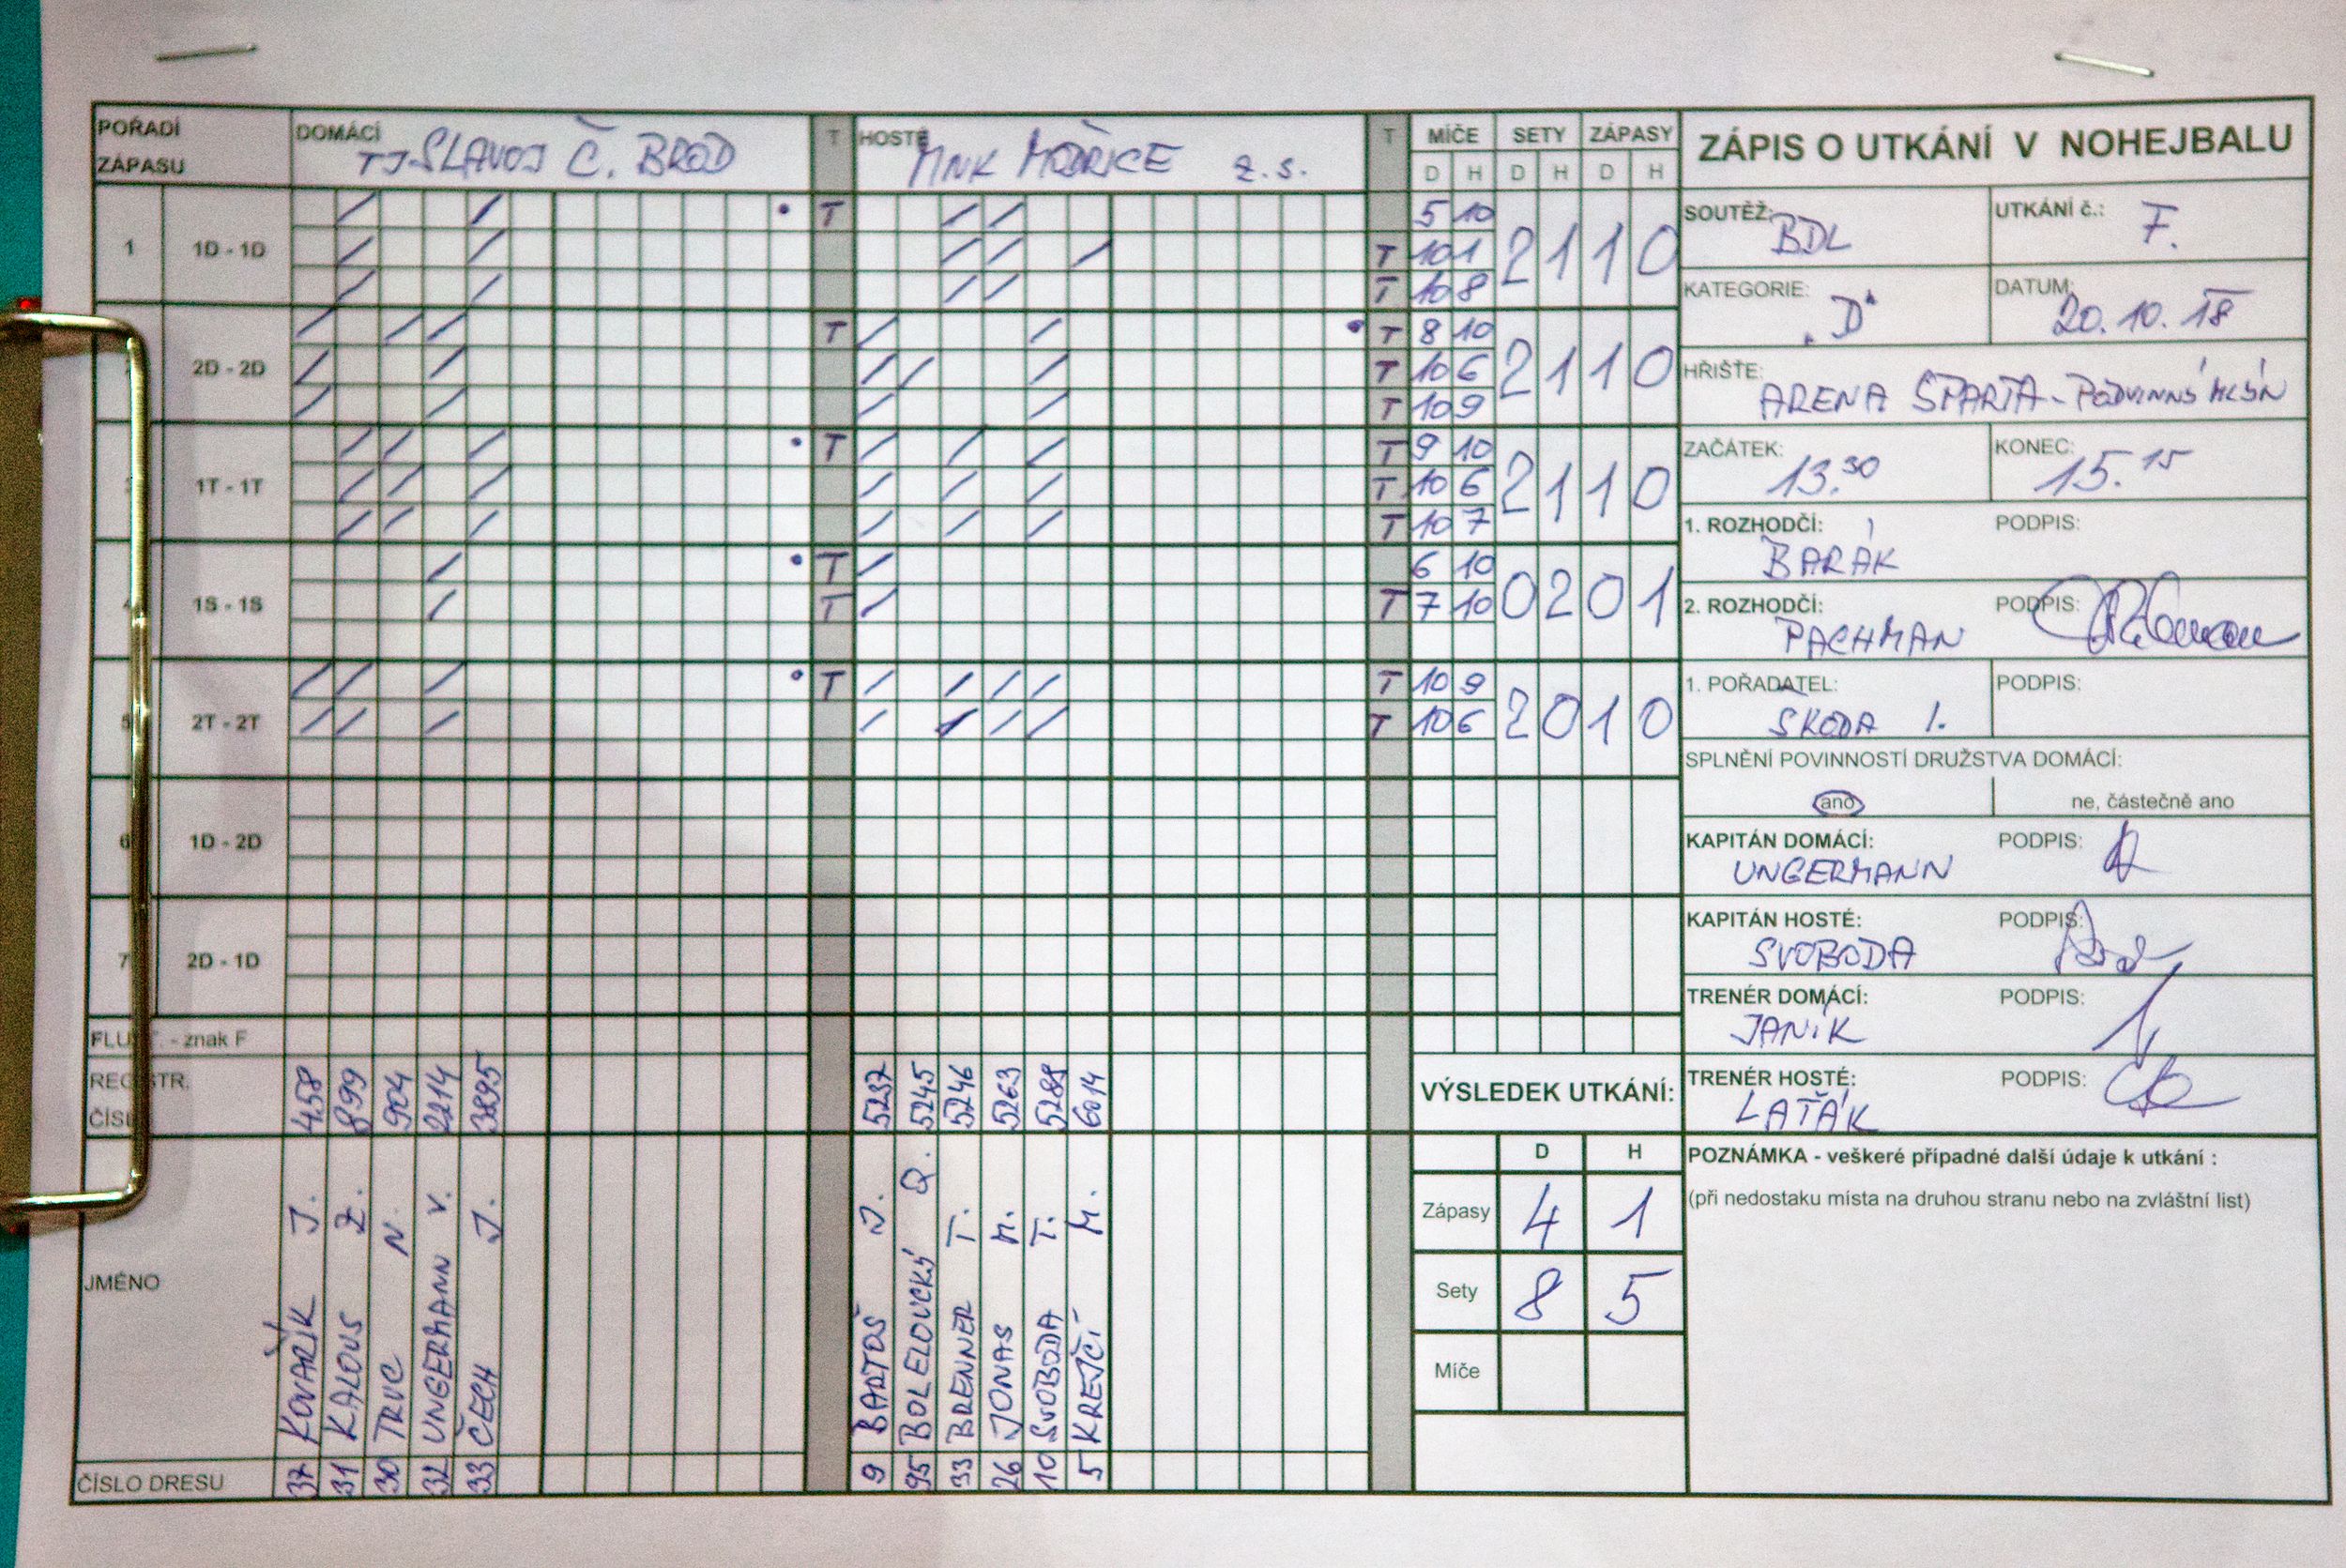 POŘADÍ ZÁPASU DOMÁCÍ TJ SLAVOJ Č. BROD T HOSTÉ MNK MODŘICE z.s. T MÍČE SETY ZÁPASY
D H D H D H
1 1D - 1D T 5 10 2 1 1 0
T 10 1
T 10 8
2D - 2D T T 8 10 2 1 1 0
T 10 6
T 10 9
1T - 1T T T 9 10 2 1 1 0
T 10 6
T 10 7
1S - 1S T 6 10 0 2 0 1
T T 7 10
5 2T - 2T T T 10 9 2 0 1 0
T 10 6
6 1D - 2D
7 2D - 1D
- znak F
REGISTR. ČÍSL 458 899 904 2214 3895 5237 5245 5246 5263 5289 6014
JMÉNO
KOVAŘÍK J.
KALOUS Z.
TRUC N.
UNGERMANN V.
ČECH J.
BARTOŠ J.
BOLELOUCKÝ O.
BRENNER T.
JONAS M.
SVOBODA T.
KREJČÍ M.
ČÍSLO DRESU 37 31 30 32 33 9 95 33 26 10 5
VÝSLEDEK UTKÁNÍ:
D H
Zápasy 4 1
Sety 8 5
Míče
ZÁPIS O UTKÁNÍ V NOHEJBALU
SOUTĚŽ: BDL UTKÁNÍ č.: F.
KATEGORIE: „D“ DATUM: 20.10.18
HŘIŠTE: ARENA SPARTA - PODVINNÝ MLÝN
ZAČÁTEK: 13.30 KONEC: 15.15
1. ROZHODČÍ: BARÁK PODPIS:
2. ROZHODČÍ: PACHMAN PODPIS:
1. POŘADATEL: ŠKODA I. PODPIS:
SPLNĚNÍ POVINNOSTÍ DRUŽSTVA DOMÁCÍ:
ano ne, částečně ano
KAPITÁN DOMÁCÍ: UNGERMANN PODPIS:
KAPITÁN HOSTÉ: SVOBODA PODPIS:
TRENÉR DOMÁCÍ: JANÍK PODPIS:
TRENÉR HOSTÉ: LAŤÁK PODPIS:
POZNÁMKA - veškeré případné další údaje k utkání :
(při nedostaku místa na druhou stranu nebo na zvláštní list)